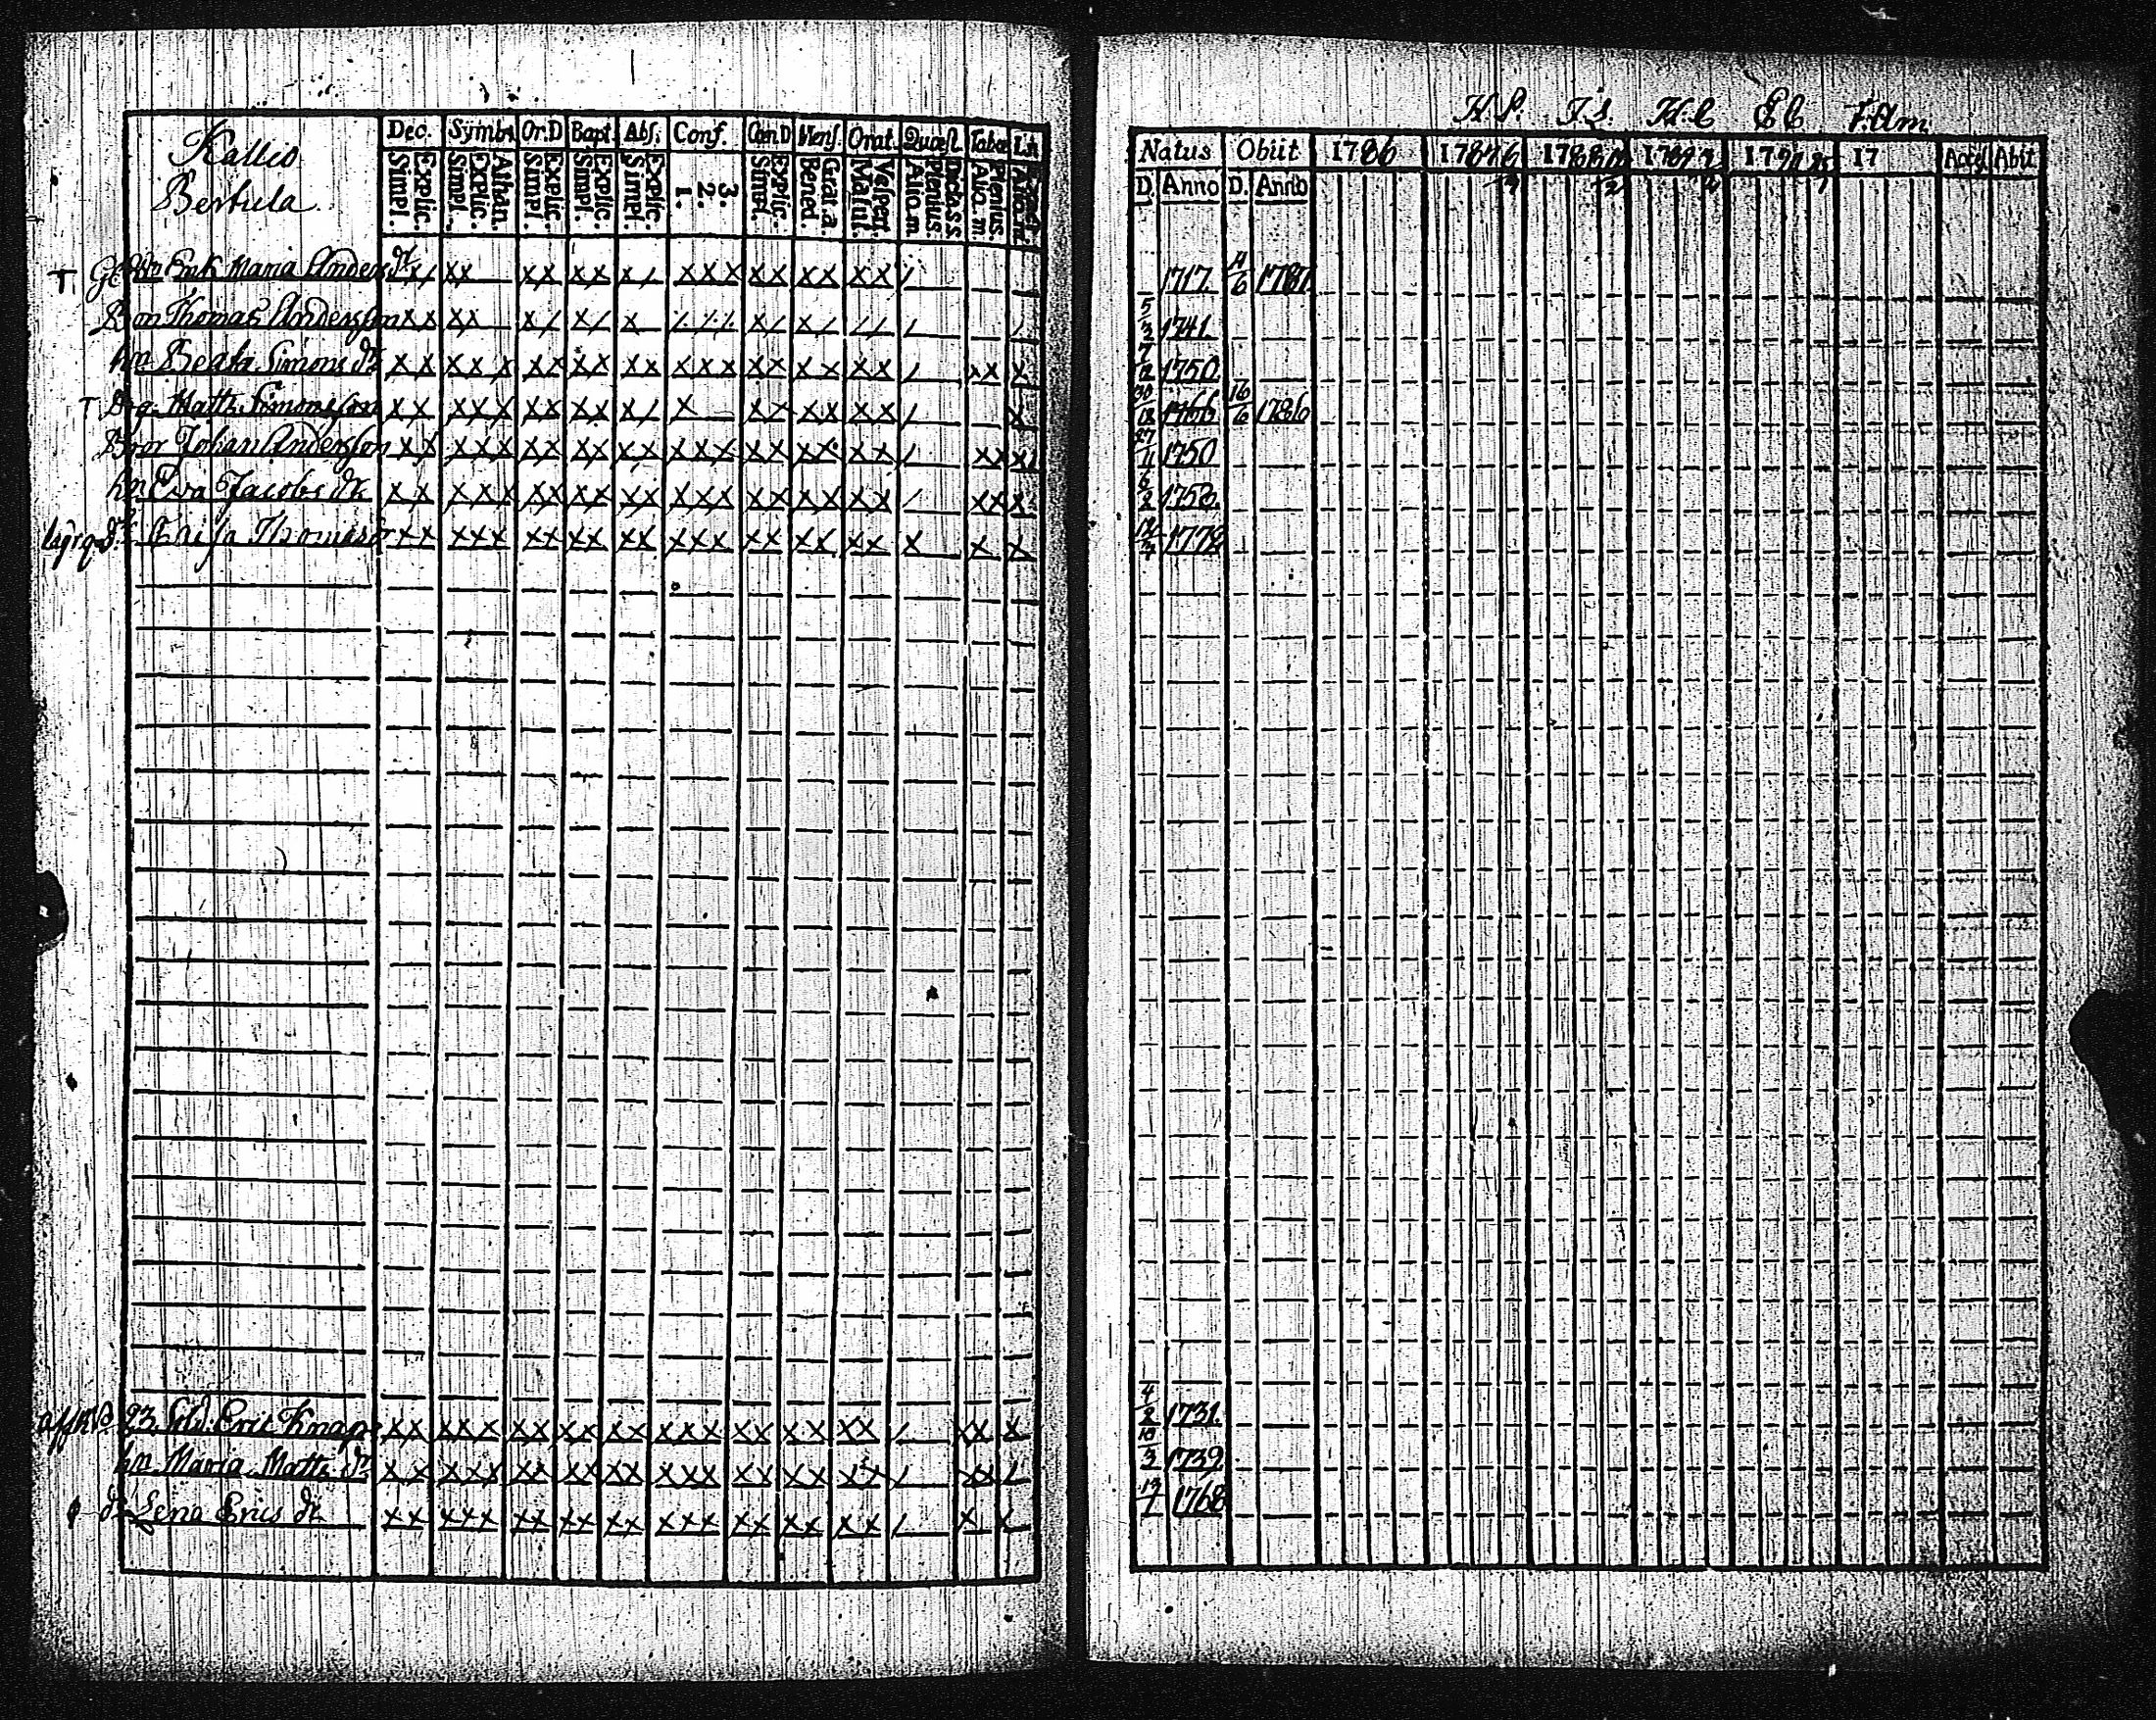 H.S. J.S. H.C EC J.Am.
Kallio
Bertula
Dec. Symb. Or.D Bapt. Abs. Conf. Cœn.D Mens. Orat. Quæst. Tabœ
Simpl. Explic. Simpl. Explic. Athan. Simpl. Explic. Simpl. Explic. Simpl. Explic. 1. 2. 3. Simpl. Explic. Bened. Grat.a. Matut. Vespert. Alio.m. Plenius. Dicta.s.s. Alio.m. Plenius.
Natus Obiit 1786 1787 1788 1789 1790 17 Access Abit
D. Anno D. Anno
T. Enk. Maria Anders dr xx xx xx xx x/ xxx xx xx xx / 1717. 6 1787
Thomas Andersson xx xx x/ x/ x /// x/ x/ // / / 5/3 1741.
hu. Beata Simons dr xx xxx xx xx xx xxx xx xx xx / xx x 7/12 1750.
T Matts Simonsson xx xxx xx xx x/ x xx xx xx / x 30/12 1766 16/6 1786
Bror Johan Andersson xx xxx xx xx xx xxx xx xx xx / xx x/ 27/11 1750
hu Eva Jacobs dr xx xxx xx xx xx xxx xx xx xx / xx x. 6/2 1750.
Caisa Thomas dr xx xxx xx xx xx xxx xx xx xx x x x 1772
23. Sold. Eric Knap xx xxx xx xx xx xxx xx xx xx / xx x 4/2 1731.
hu. Maria Matts dr xx xxx xx xx xx xxx xx xx xx / xx / 10/3 1739.
dr Lena Erics dr xx xxx xx xx xx xxx xx xx xx / x/ x 19/1 1768